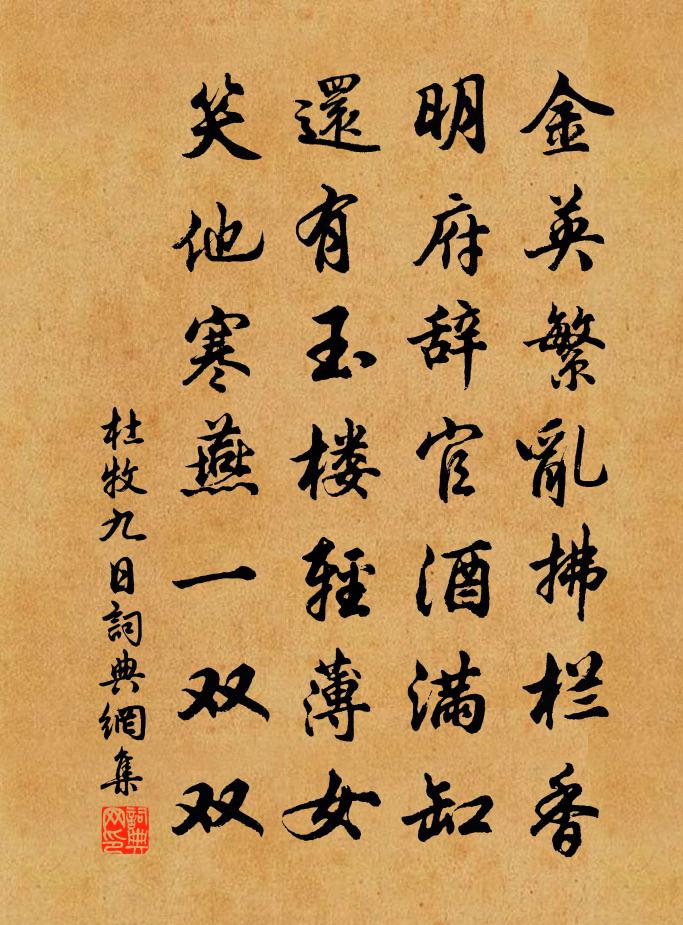 金英繁亂拂栏香
明府辞官酒满缸
還有玉楼輕薄女
笑他寒燕一双双
杜牧九日詞典網集
詞典網印